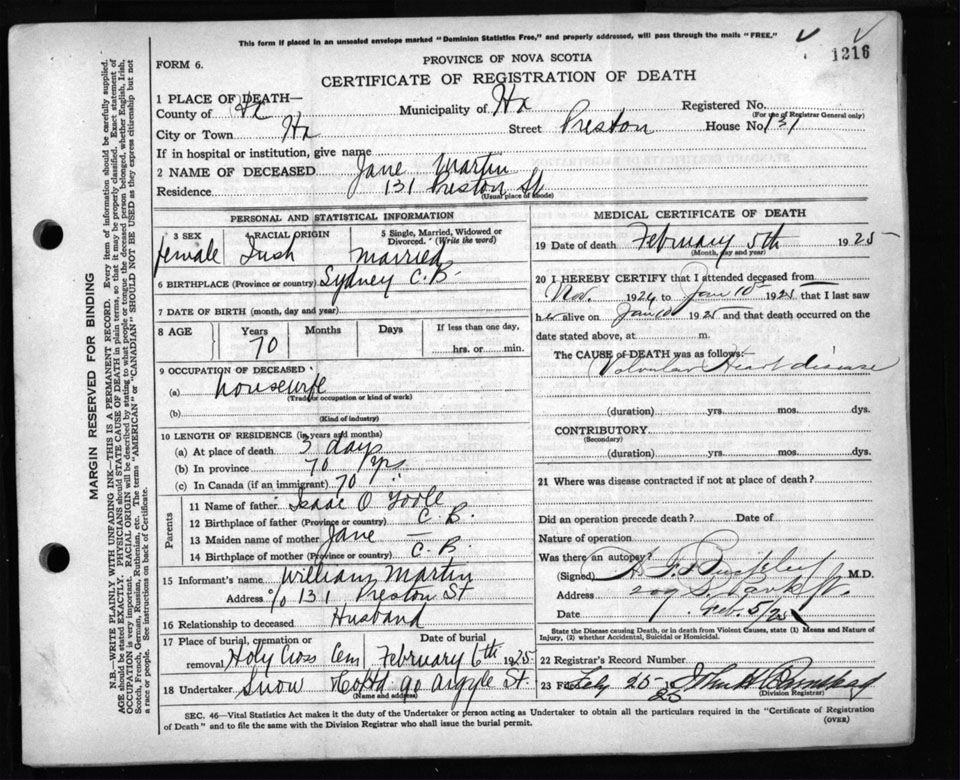 This form if placed in an unsealed envelope marked "Dominion Statistics Free," and properly addressed, will pass through the mails "FREE."
1216
FORM 6.
PROVINCE OF NOVA SCOTIA
CERTIFICATE OF REGISTRATION OF DEATH
1 PLACE OF DEATH—
County of Hx Municipality of Hx Registered No.
(For use of Registrar General only)
City or Town Hx Street Preston House No. 131
If in hospital or institution, give name
2 NAME OF DECEASED Jane Martin
Residence 131 Preston St
(Usual place of abode)
PERSONAL AND STATISTICAL INFORMATION
3 SEX 4 RACIAL ORIGIN 5 Single, Married, Widowed or Divorced. (Write the word)
female Irish Married
6 BIRTHPLACE (Province or country) Sydney C.B.
7 DATE OF BIRTH (month, day and year)
8 AGE Years Months Days If less than one day.
70 hrs. or min.
9 OCCUPATION OF DECEASED
(a) housewife
(Trade, occupation or kind of work)
(b)
(Kind of industry)
10 LENGTH OF RESIDENCE (in years and months)
(a) At place of death 3 days
(b) In province 70 yrs
(c) In Canada (if an immigrant) 70 "
Parents
11 Name of father Isaac O Toole
12 Birthplace of father (Province or country) C.B.
13 Maiden name of mother Jane —
14 Birthplace of mother (Province or country) C.B.
15 Informant's name William Martin
Address % 131 Preston St
16 Relationship to deceased Husband
17 Place of burial, cremation or removal Holy Cross Cem Date of burial February 6th 1925
18 Undertaker Snow & Co Ltd 90 Argyle St.
(Name and address)
MEDICAL CERTIFICATE OF DEATH
19 Date of death February 5th 1925
(Month, day and year)
20 I HEREBY CERTIFY that I attended deceased from
Nov. 1924 to Jan 10 1925 that I last saw
her alive on Jan 10 1925 and that death occurred on the
date stated above, at m.
The CAUSE of DEATH was as follows:
Valvular Heart disease
(duration) yrs. mos. dys.
CONTRIBUTORY
(Secondary)
(duration) yrs. mos. dys.
21 Where was disease contracted if not at place of death?
Did an operation precede death? Date of
Nature of operation
Was there an autopsy?
(Signed) Buckley M.D.
Address 209 S. Park St.
Date Feb. 5/25
State the Disease causing Death, or in death from Violent Causes, state (1) Means and Nature of Injury, (2) whether Accidental, Suicidal or Homicidal.
22 Registrar's Record Number
23 Filed Feby 25 1925 John H
(Division Registrar)
SEC. 46—Vital Statistics Act makes it the duty of the Undertaker or person acting as Undertaker to obtain all the particulars required in the "Certificate of Registration
of Death" and to file the same with the Division Registrar who shall issue the burial permit.
(OVER)
MARGIN RESERVED FOR BINDING
N.B.—WRITE PLAINLY WITH UNFADING INK—THIS IS A PERMANENT RECORD. Every item of information should be carefully supplied.
AGE should be stated EXACTLY. PHYSICIANS should STATE CAUSE OF DEATH in plain terms, so that it may be properly classified. Exact statement of
OCCUPATION is very important. RACIAL ORIGIN will be described by stating to what people or tongue the deceased person belonged, whether English, Irish,
Scotch, French, German, Russian, Ruthenian, etc. The terms "AMERICAN" or "CANADIAN" SHOULD NOT BE USED as they express citizenship but not
a race or people. See instructions on back of Certificate.